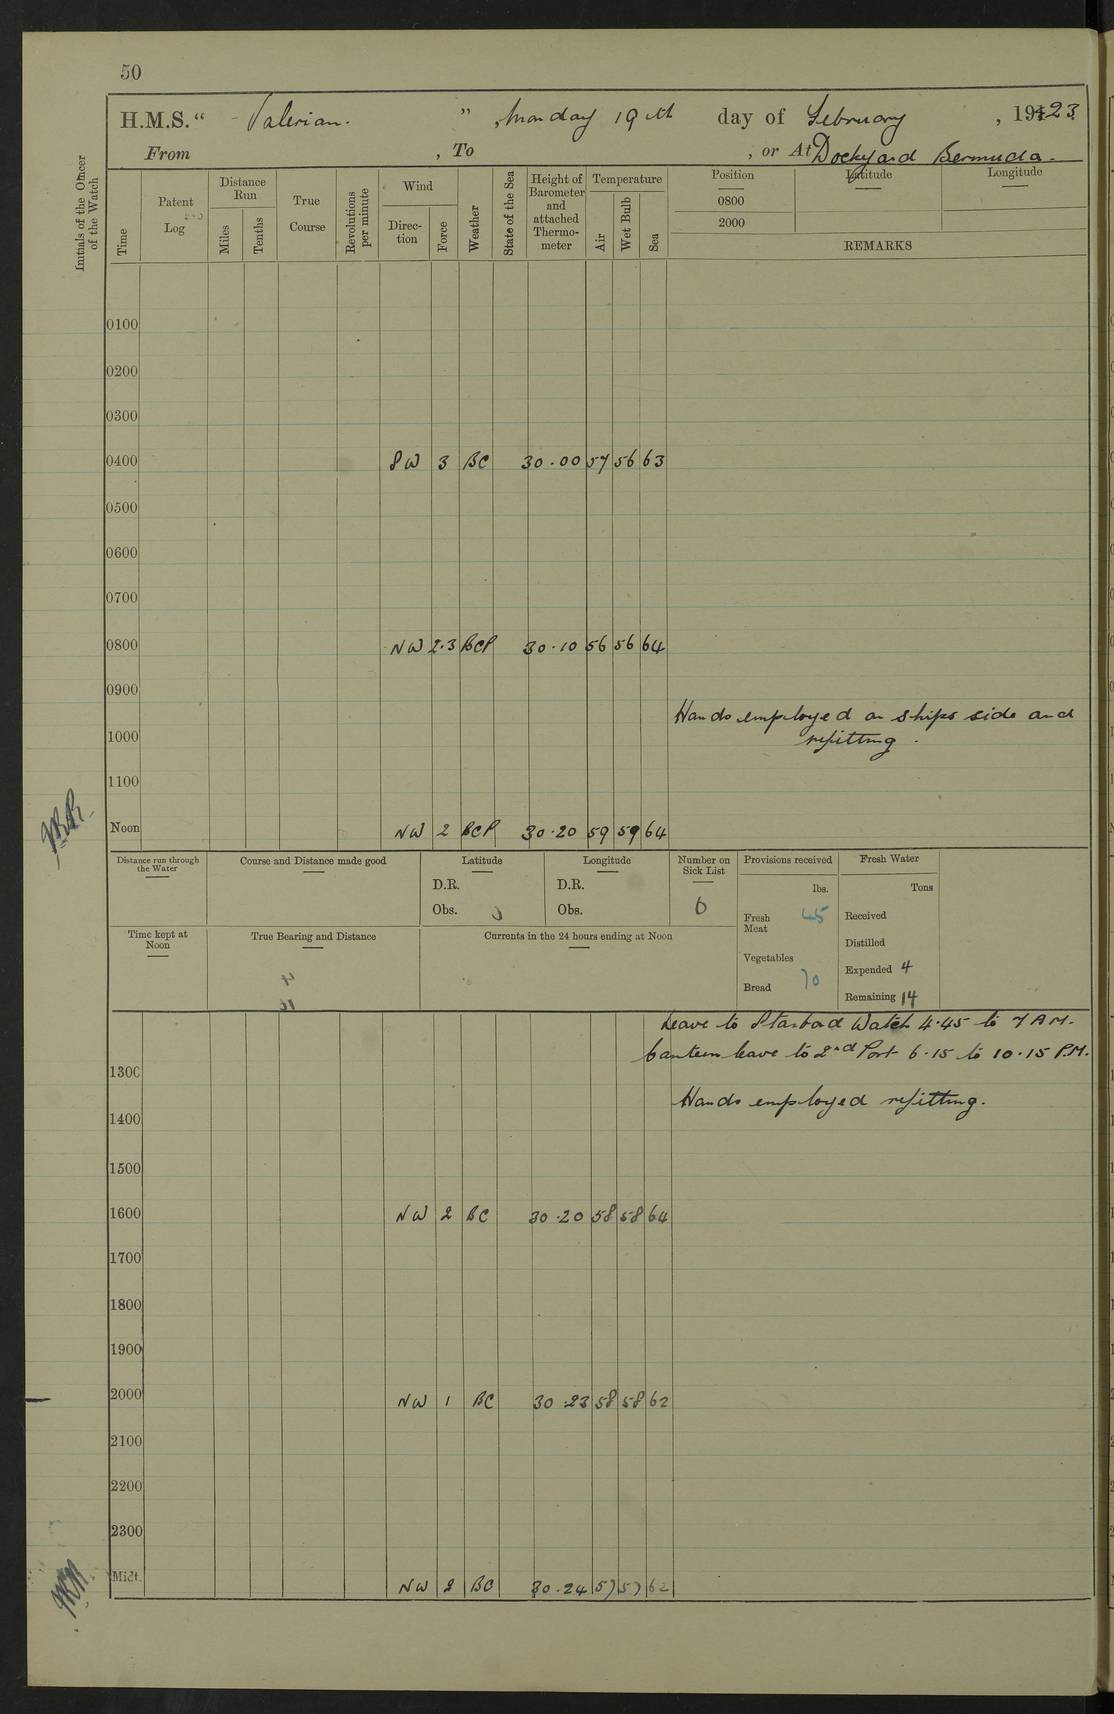 50
H.M.S. " Valerian. " , Monday 19th day of February , 1923
From , To , or At Dockyard Bermuda.
Initials of the Officer of the Watch
Time
Patent Log
Distance Run
Miles
Tenths
True Course
Revolutions per minute
Wind
Direction
Force
Weather
State of the Sea
Height of Barometer and attached Thermometer
Temperature
Air
Wet Bulb
Sea
Position Latitude Longitude
0800
2000
REMARKS
0100
0200
0300
0400 SW 3 BC 30.00 57 56 63
0500
0600
0700
0800 NW 2.3 BCP 30.10 56 56 64
0900
Hands employed on ships side and
1000 refitting.
1100
Noon NW 2 BCP 30.20 59 59 64
Distance run through the Water
Course and Distance made good
Latitude
D.R.
Obs.
Longitude
D.R.
Obs.
Number on Sick List
0
Provisions received
lbs.
Fresh Meat 45
Vegetables
Bread 70
Fresh Water
Tons
Received
Distilled
Expended 4
Remaining 14
Time kept at Noon
True Bearing and Distance
Currents in the 24 hours ending at Noon
Leave to Starbod Watch 4.45 to 7 AM.
Canteen leave to 2nd Port 6.15 to 10.15 P.M.
1300
Hands employed refitting.
1400
1500
1600 NW 2 BC 30.20 58 58 64
1700
1800
1900
2000 NW 1 BC 30.23 58 58 62
2100
2200
2300
Midt. NW 2 BC 30.24 57 57 62